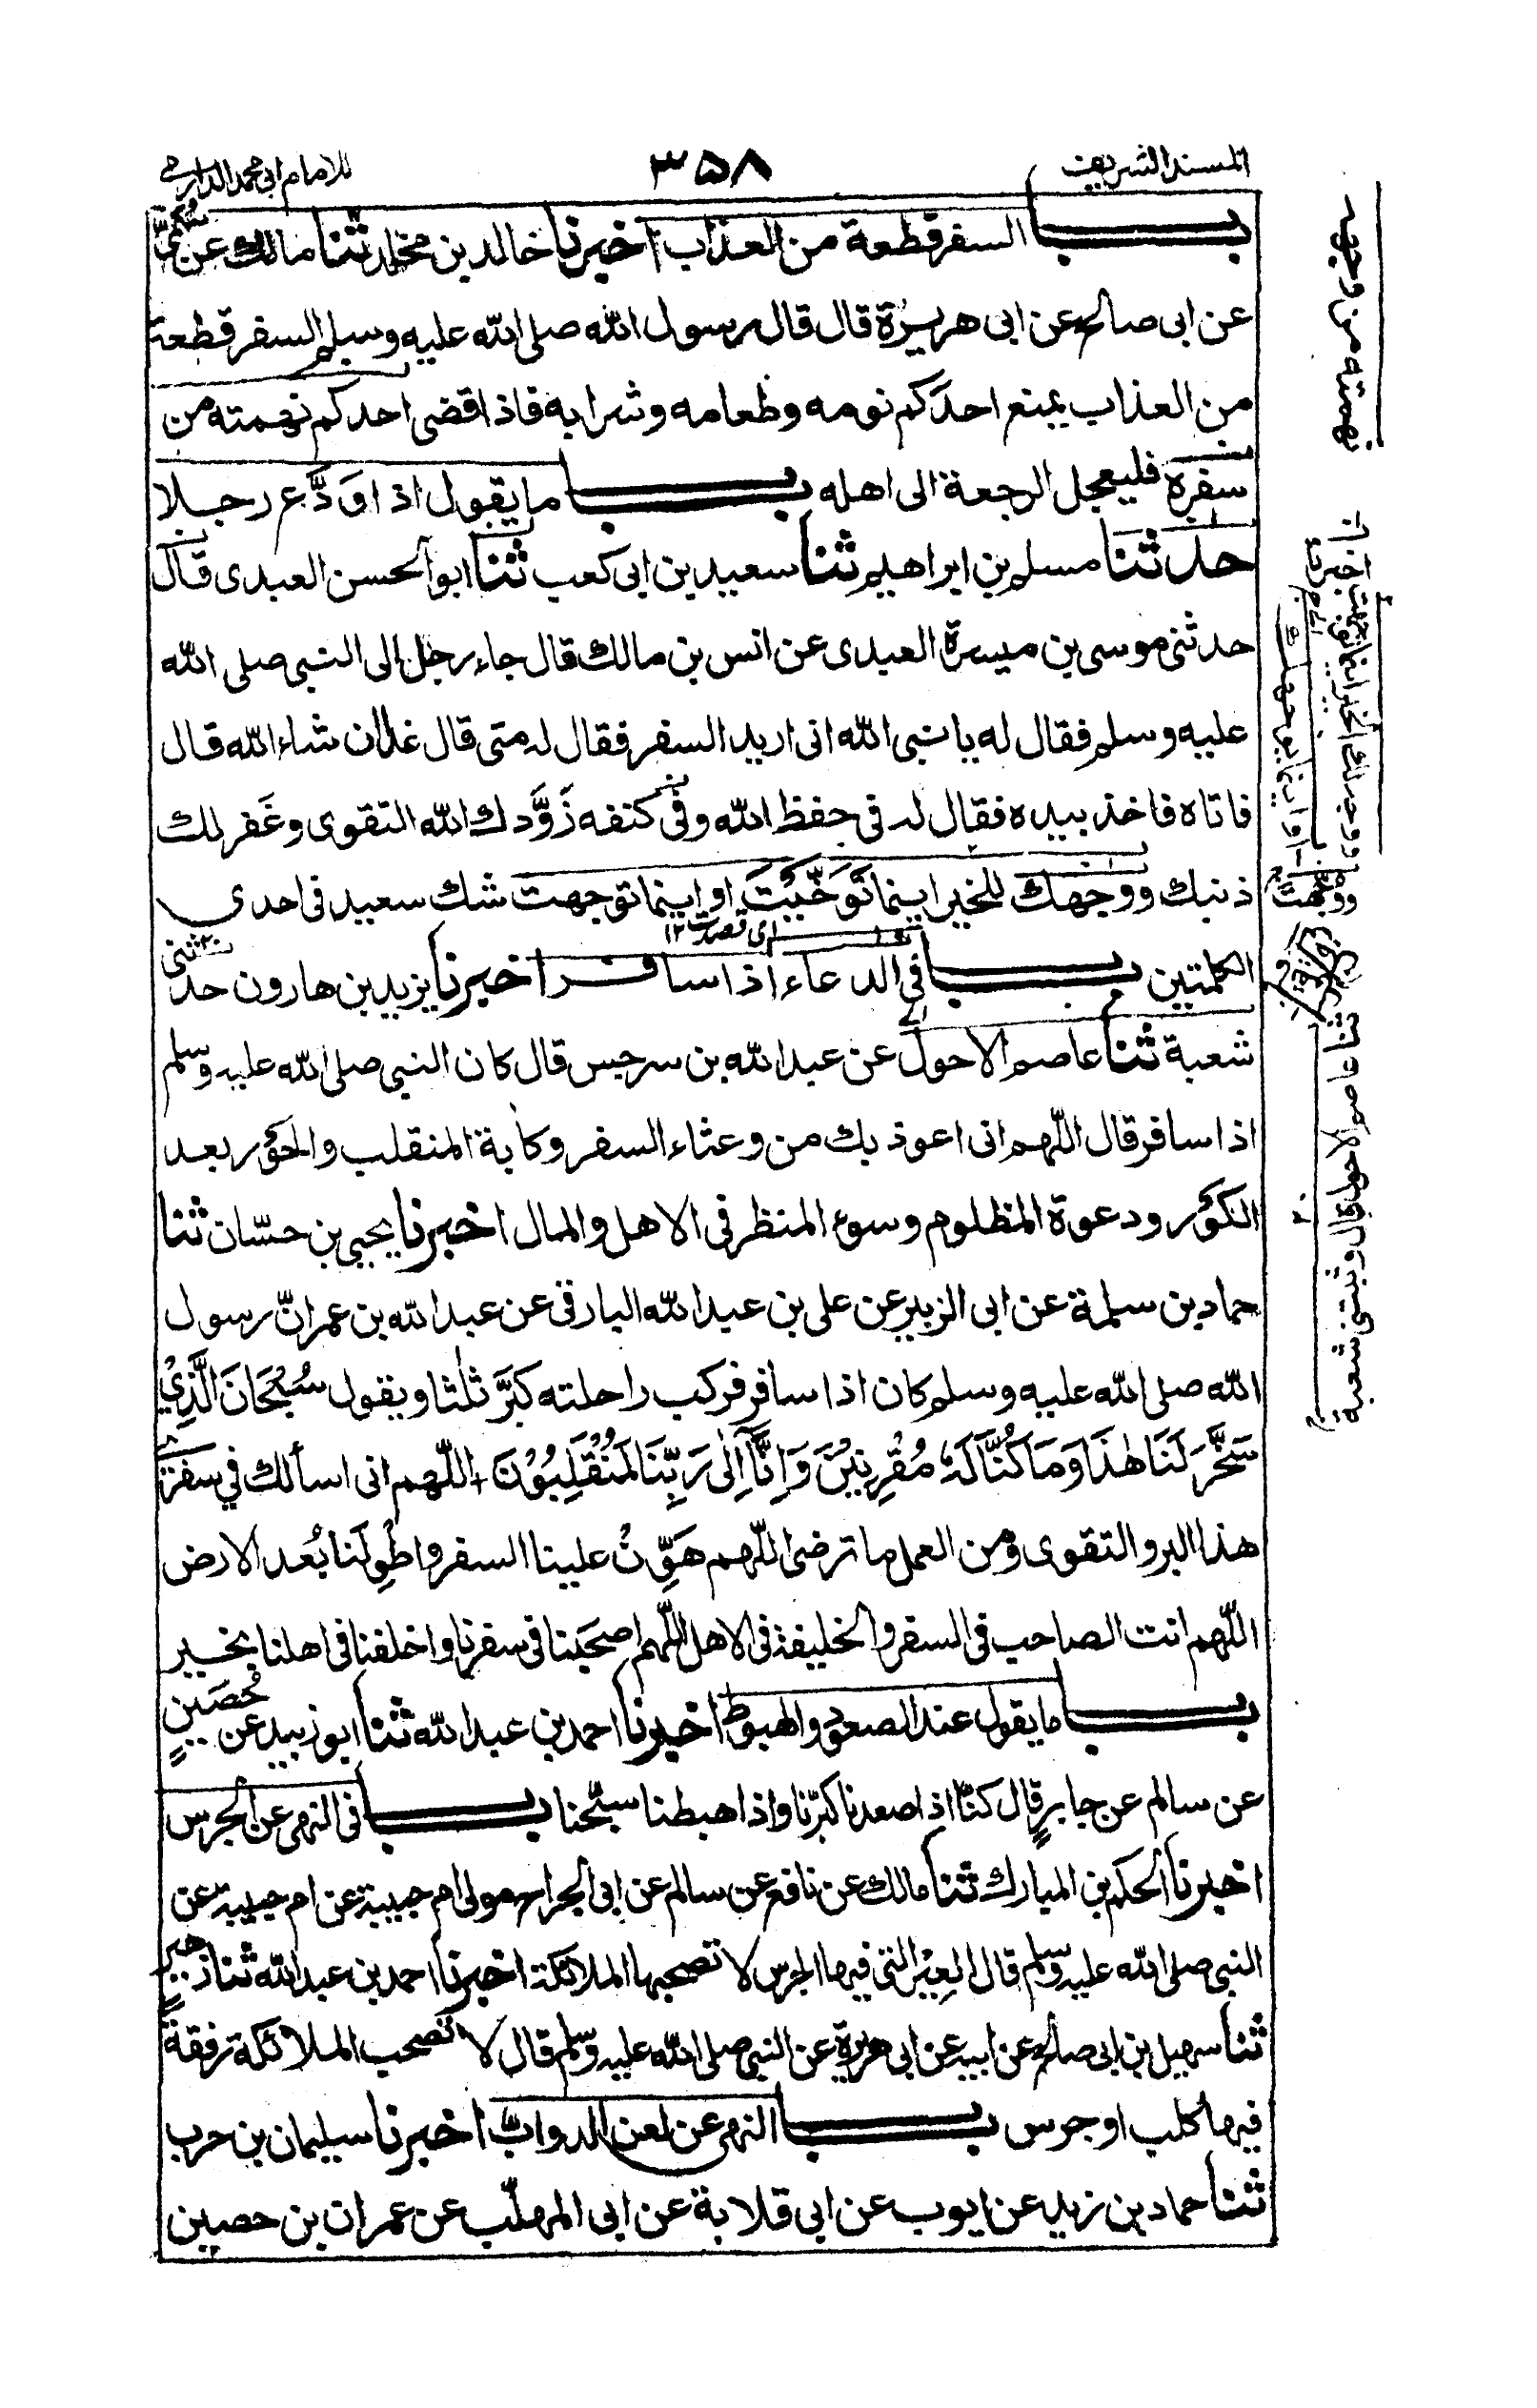 المسند الشريف ٣٥٨ للامام ابی محمد الدارمی
بـــاب السفر قطعة من العذاب اخبرنا خالد بن مخلد ثنا مالك عن سُمَيٍّ
عن ابی صالح عن ابی هريرة قال قال رسول الله صلی الله عليه وسلم السفر قطعة
من العذاب يمنع احدكم نومه وطعامه وشرابه فاذا قضی احدكم نهمته من
سفره فليعجل الرجعة الی اهله بـــاب ما يقول اذا وَدَّع رجلا
حدثنا مسلم بن ابراهيم ثنا سعيد بن ابی كعب ثنا ابو الحسن العبدی قال
حدثنی موسی بن ميسرة العبدی عن انس بن مالك قال جاء رجل الی النبی صلی الله
عليه وسلم فقال له يا نبی الله انی اريد السفر فقال له متی قال غدا ان شاء الله قال
فاتاه فاخذ بيده فقال له فی حفظ الله وفی كنفه زَوَّدك الله التقوی وغَفر لك
ذنبك ووجهك للخير اينما تَوَخَّيْتَ او اينما توجهت شك سعيد فی احدی
ای قصدت ١٢
الكلمتين بـــاب فی الدعاء اذا سافر اخبرنا يزيد بن هارون حدثنی
شعبة ثنا عاصم الاحول عن عبد الله بن سرجس قال كان النبی صلی الله عليه وسلم
اذا سافر قال اللّهم انی اعوذ بك من وعثاء السفر وكابة المنقلب والحَوْر بعد
الكَوْر ودعوة المظلوم وسوء المنظر فی الاهل والمال اخبرنا يحيی بن حسّان ثنا
حماد بن سلمة عن ابی الزبير عن علی بن عبد الله البارقی عن عبد الله بن عمر انّ رسول
الله صلی الله عليه وسلم كان اذا سافر فركب راحلته كَبَّرَ ثلٰثا ويقول سُبْحَانَ الَّذِیْ
سَخَّرَ لَنَا هٰذَا وَمَا كُنَّا لَهٗ مُقْرِنِيْنَ وَاِنَّآ اِلٰی رَبِّنَا لَمُنْقَلِبُوْنَ اللّهم انی اسألك فی سفری
هذا البر والتقوی ومن العمل ما ترضی اللّهم هَوِّنْ علينا السفر واطْوِ لَنا بُعد الارض
اللّهم انت الصاحب فی السفر والخليفة فی الاهل اللّهم اصحَبنا فی سفرنا واخلفنا فی اهلنا بخير
بـــاب ما يقول عند الصعود والهبوط اخبرنا احمد بن عبد الله ثنا ابو زبيد عن حُصَينٍ
عن سالم عن جابرٍ قال كنّا اذا صعدنا كبّرنا واذا هبطنا سبّحنا بـــاب فی النهی عن الجرس
اخبرنا الحكم بن المبارك ثنا مالك عن نافع عن سالم عن ابی الجراح مولی ام حبيبة عن ام حبيبة عن
النبی صلی الله عليه وسلم قال العِيْرُ التی فيها الجرس لا تصحبها الملائكة اخبرنا احمد بن عبد الله ثنا زهير
ثنا سهيل بن ابی صالح عن ابيه عن ابی هريرة عن النبی صلی الله عليه وسلم قال لا تصحب الملائكة رفقةً
فيها كلب او جرس بـــاب النهی عن لعن الدوابّ اخبرنا سليمان بن حرب
ثنا حماد بن زيد عن ايوب عن ابی قلابة عن ابی المهلّب عن عمران بن حصين
نهمته من وجهه
ثنا عاصم الاحول قال وثبتنی شعبة